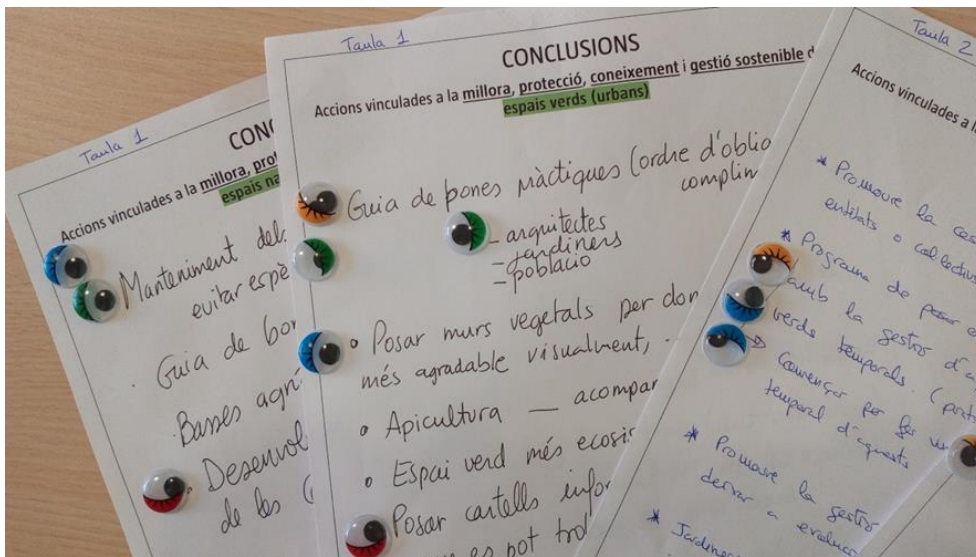 Taula 1
CON
Accions vinculades a la millora, pro
espais na
Manteniment dels
evitar espè
Guia de bon
Basses agrí
Desenvol
de les
Taula 1
CONCLUSIONS
Accions vinculades a la millora, protecció, coneixement i gestió sostenible d
espais verds (urbans)
Guia de bones pràctiques (ordre d'oblig
complim
- arquitectes
- jardiners
- població
• Posar murs vegetals per don
més agradable visualment,
• Apicultura — acompa
• Espai verd més ecosis
Posar cartells infor
es pot trob
Taula 2
Accions vinculades a l
* Promoure la
entitats o col·lectiu
* Programa de posar
amb la gestió d'
verds temporals. (
Començar per fer
temporal d'aquests
* Promoure la gestió
deixar a
* Jardiner